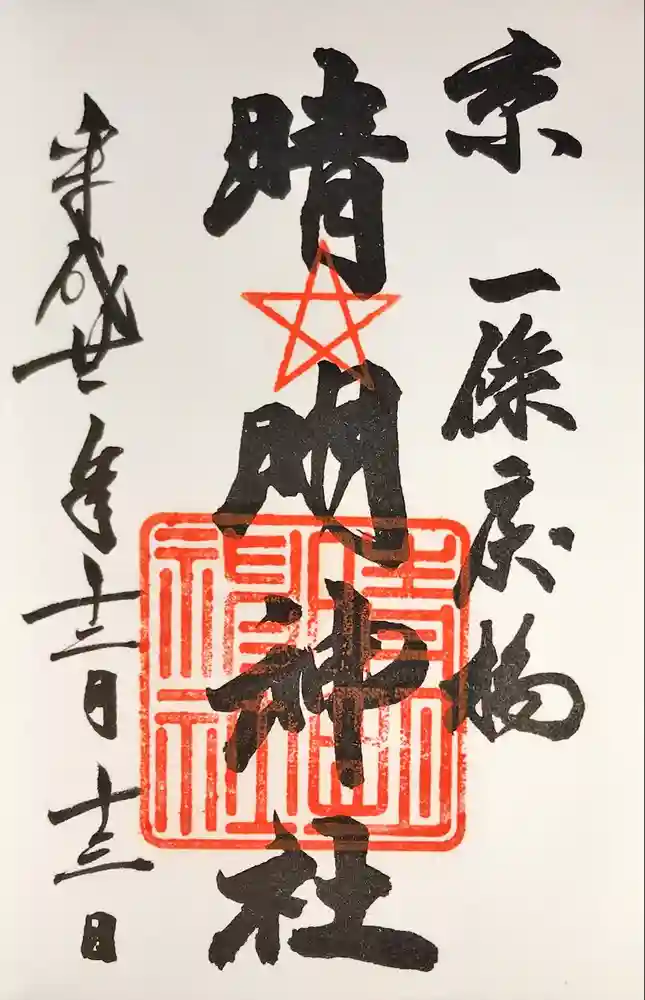 京 一條戻橋
晴明神社
平成廿一年十二月十三日